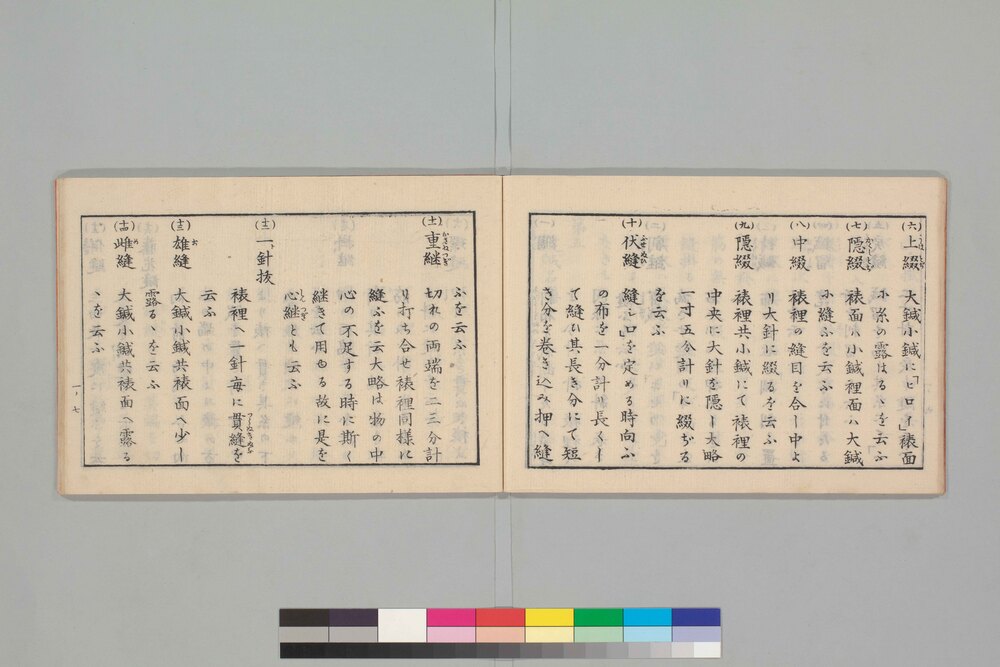 (六)上綴 大鍼小鍼にヒロイ裱面
に糸の露はるゝを云ふ
(七)隠縫 裱面小鍼裡面ハ大鍼
に縫ふを云ふ
(八)中綴 裱裡の縫目を合し中よ
り大針に綴るを云ふ
(九)隠綴 裱裡共小鍼にて裱裡の
中央に大針を隠し大略
一寸五分計りに綴ぢる
を云ふ
(十)伏縫 縫ひ口を定める時向ふ
の布を一分計り長くし
て縫ひ其長き分にて短
き分を巻き込み押へ縫
ふを云ふ
(十一)重継 切れの両端を二三分計
り打ち合せ裱裡同様に
縫ふを云大略は物の中
心の不足する時に斯く
継ぎて用ゐる故に是を
心継とも云ふ
(十二)一針抜
裱裡へ一針毎に貫縫を
云ふ
(十三)雄縫 大鍼小鍼共裱面へ少し
露るゝを云ふ
(十四)雌縫 大鍼小鍼共裱面へ露る
ゝを云ふ
一ノ七